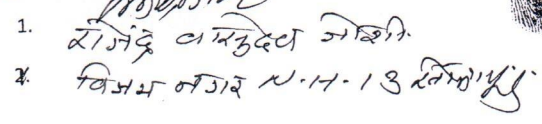 1. राजेंद्र वासुदेव जोशी
2. विजय नगर N.H.13